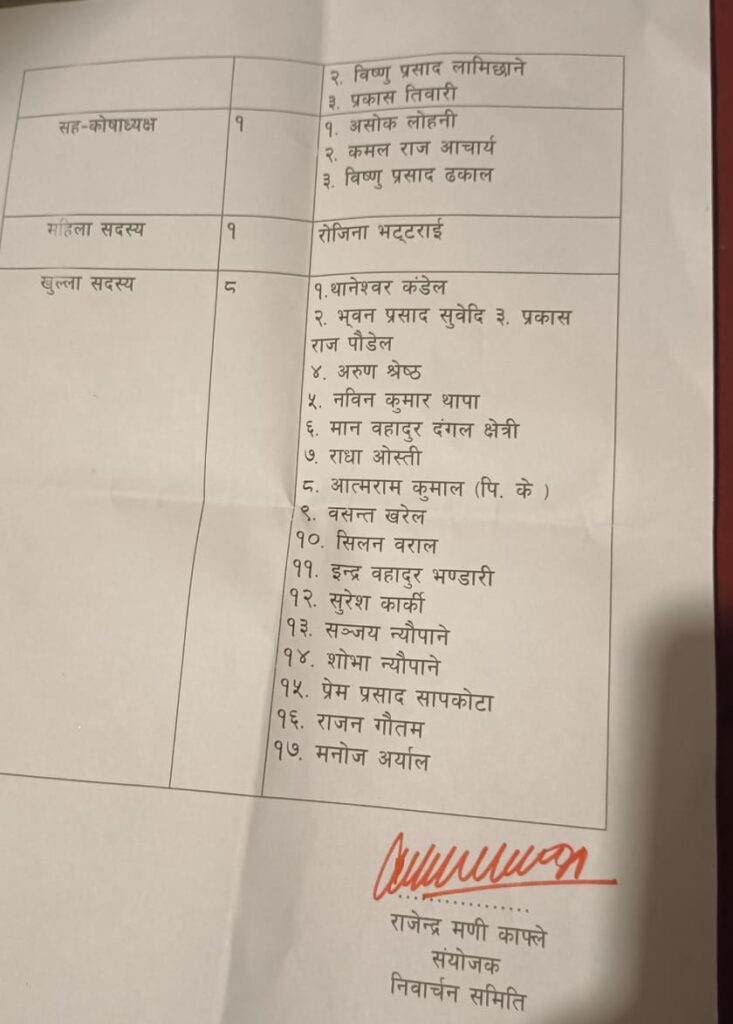 २. विष्णु प्रसाद लामिछाने
३. प्रकास तिवारी
सह-कोषाध्यक्ष १ १. असोक लोहनी
२. कमल राज आचार्य
३. विष्णु प्रसाद ढकाल
महिला सदस्य १ रोजिना भट्टराई
खुल्ला सदस्य ८ १.थानेश्वर कंडेल
२. भूवन प्रसाद सुवेदि ३. प्रकास
राज पौडेल
४. अरुण श्रेष्ठ
५. नविन कुमार थापा
६. मान वहादुर दंगल क्षेत्री
७. राधा ओस्ती
८. आत्मराम कुमाल (पि. के )
९. वसन्त खरेल
१०. सिलन वराल
११. इन्द्र वहादुर भण्डारी
१२. सुरेश कार्की
१३. सञ्जय न्यौपाने
१४. शोभा न्यौपाने
१५. प्रेम प्रसाद सापकोटा
१६. राजन गौतम
१७. मनोज अर्याल
राजेन्द्र मणी काफ्ले
संयोजक
निवार्चन समिति